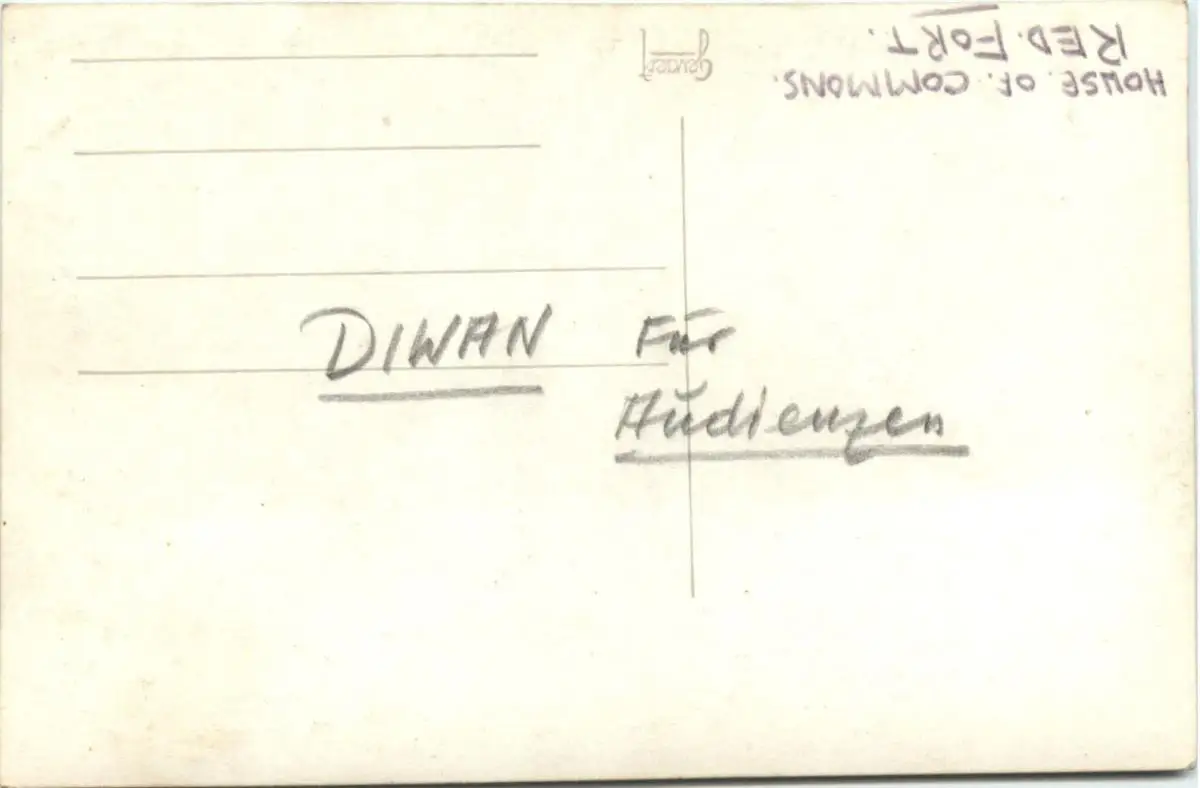 HOUSE. OF. COMMONS.
RED. FORT.
Gevaert
DIWAN Für
Audienzen